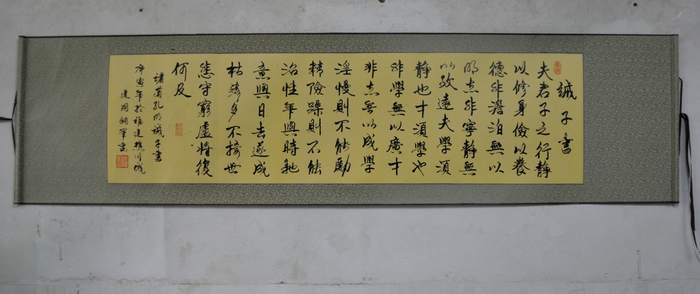 誡子書
夫君子之行靜
以修身儉以養
德非澹泊無以
明志非寧靜無
以致遠夫學須
靜也才須學也
非學無以廣才
非志無以成學
淫慢則不能勵
精險躁則不能
治性年與時馳
意與日去遂成
枯落多不接世
悲守窮廬將復
何及
諸葛孔明誡子書
庚寅年於福建